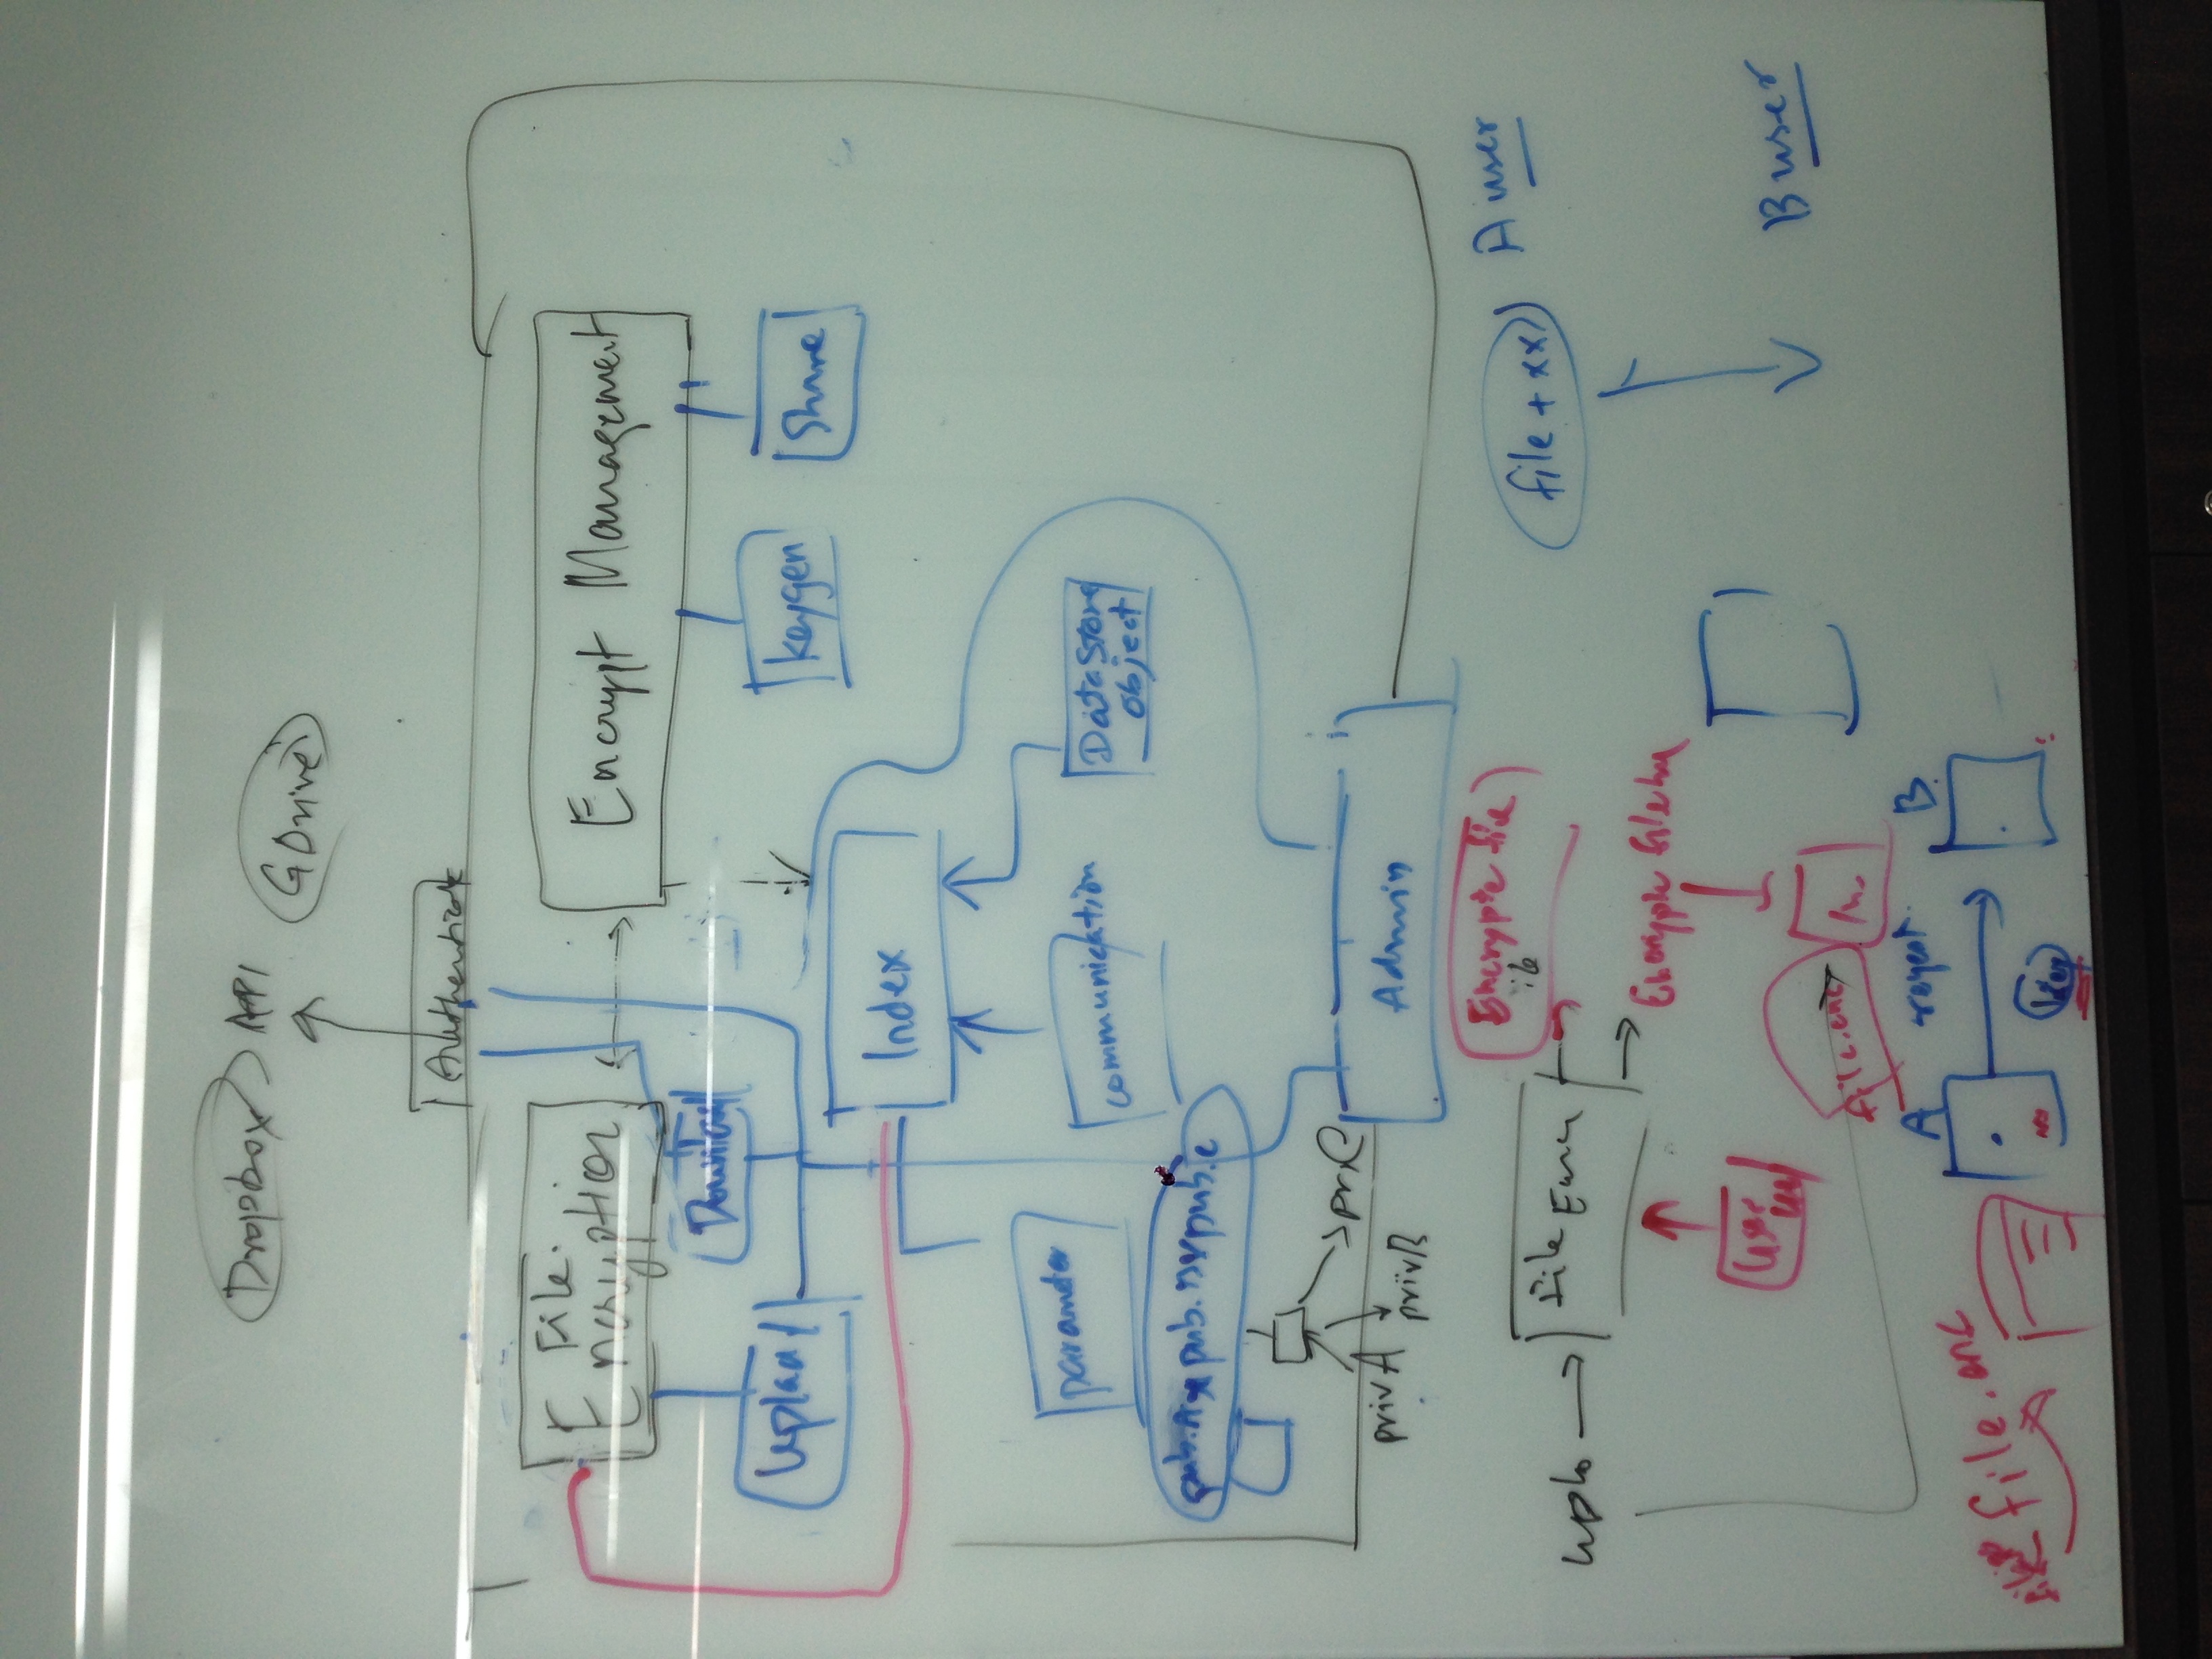 Dropbox API
GDrive
Authenticate
File
Encryption
Encrypt Management
Download
Upload
keygen
Share
Index
parameter
communication
DataStore
object
pub.A pub.B pub.c
privA
privB
privC
Admin
Encrypte file
file + xx
A user
uplo
File
Encrypte file
User
B user
file.enc
A
B
file.enc
key